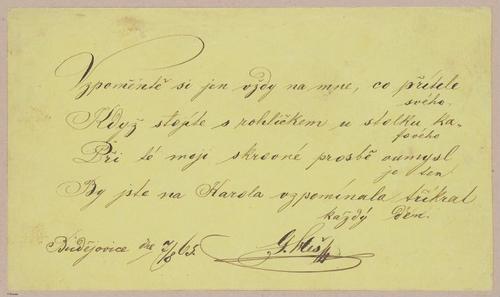 Vzpomĕntĕ si jen vždy na mne, co přítele
svého.
Když stojíte s rohlíčkem u stolku ka-
fového
Při té moji skrovné prosbĕ oumysl
je ten
By jste na Karola vzpomínala tříkrat
každý den.
Budějovice dne 7/8 65.